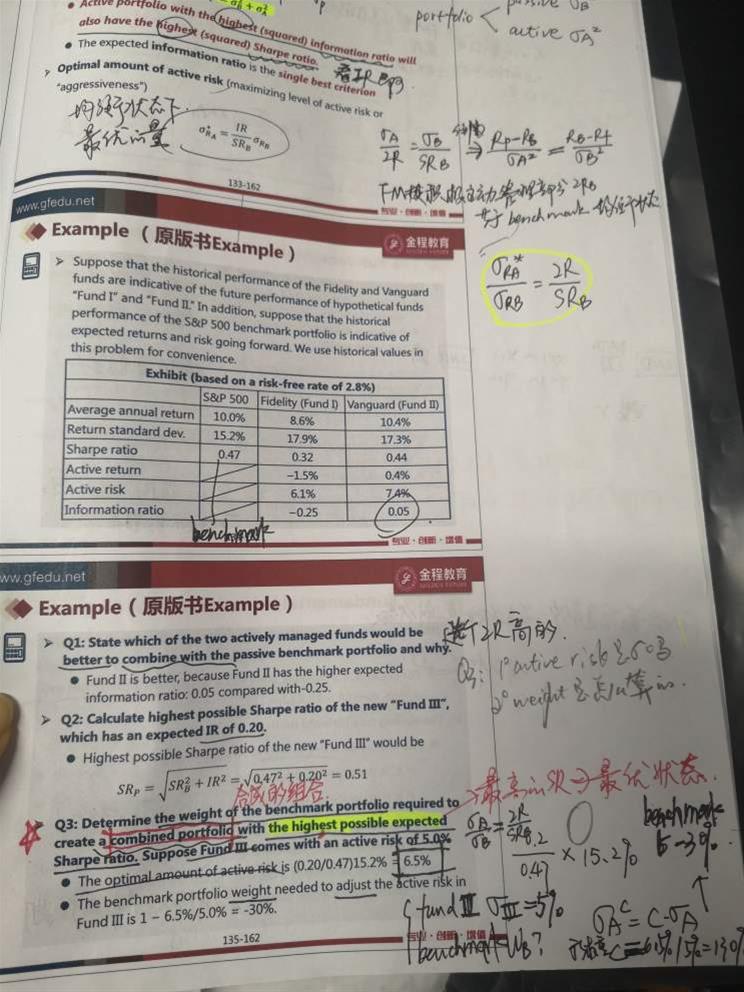 Active portfolio with the highest (squared) information ratio will
also have the highest (squared) Sharpe ratio.
The expected information ratio is the single best criterion
Optimal amount of active risk (maximizing level of active risk or
"aggressiveness")
最优
σ*RA = IR/SRB σRB
133-162
专业·创新·增值
portfolio
passive σB
active σA²
σA/IR = σB/SRB ⇒ RP-RB/σA² = RB-Rf/σB²
benchmark
σRA*/σRB = IR/SRB
www.gfedu.net
金程教育
Example（原版书Example）
Suppose that the historical performance of the Fidelity and Vanguard
funds are indicative of the future performance of hypothetical funds
"Fund I" and "Fund II." In addition, suppose that the historical
performance of the S&P 500 benchmark portfolio is indicative of
expected returns and risk going forward. We use historical values in
this problem for convenience.
Exhibit (based on a risk-free rate of 2.8%)
S&P 500 Fidelity (Fund I) Vanguard (Fund II)
Average annual return 10.0% 8.6% 10.4%
Return standard dev. 15.2% 17.9% 17.3%
Sharpe ratio 0.47 0.32 0.44
Active return −1.5% 0.4%
Active risk 6.1% 7.4%
Information ratio −0.25 0.05
benchmark
专业·创新·增值
ww.gfedu.net
金程教育
Example（原版书Example）
Q1: State which of the two actively managed funds would be
better to combine with the passive benchmark portfolio and why.
Fund II is better, because Fund II has the higher expected
information ratio: 0.05 compared with-0.25.
Q2: Calculate highest possible Sharpe ratio of the new "Fund III",
which has an expected IR of 0.20.
Highest possible Sharpe ratio of the new "Fund III" would be
SRP = √SRB² + IR² = √0.47² + 0.20² = 0.51
合成的组合
Q3: Determine the weight of the benchmark portfolio required to
create a combined portfolio with the highest possible expected
Sharpe ratio. Suppose Fund III comes with an active risk of 5.0%
The optimal amount of active risk is (0.20/0.47)15.2% = 6.5%
The benchmark portfolio weight needed to adjust the active risk in
Fund III is 1 − 6.5%/5.0% = -30%.
135-162
专业·创新·增值
IR高的.
Q3: 1° active risk
2° weight
最高的SR→最优状态.
σA/σB = IR/SRB
0.2/0.47 × 15.2%
benchmark
-30%
fund III σIII = 5%
benchmark WB?
σA^C = C·σA
C = 6.5%/5% = 130%